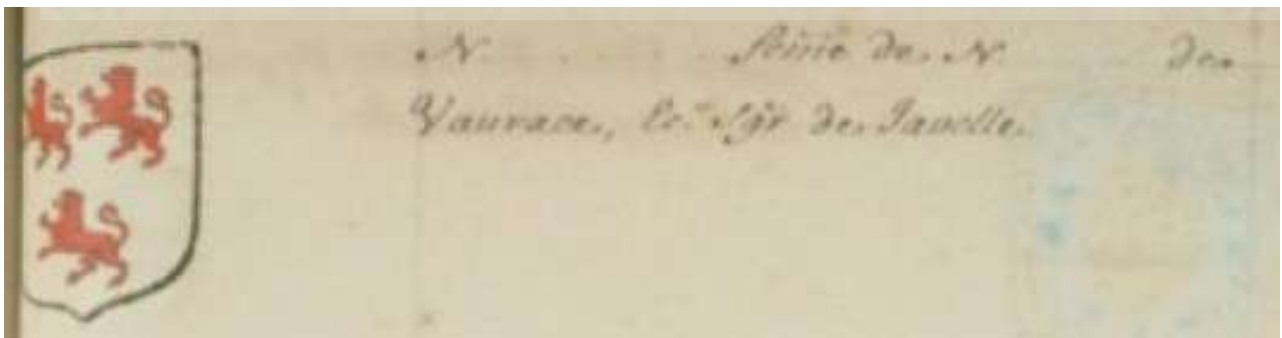 N. . . . . . fème de N. . . . . de
Vaurace, Ec. Sgr de Javelle.